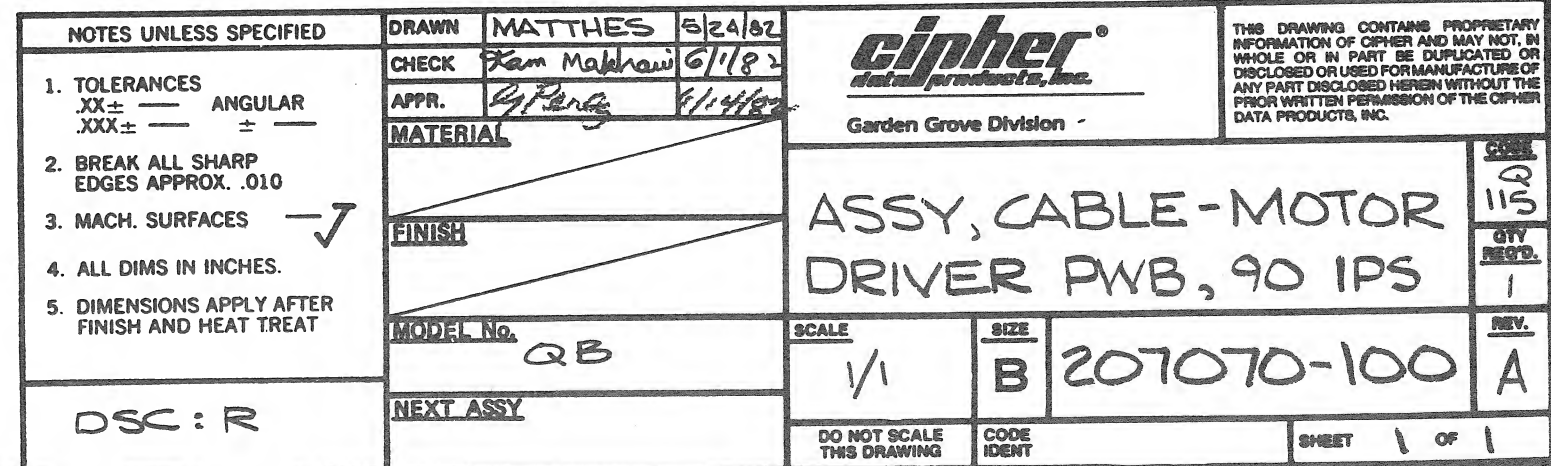 NOTES UNLESS SPECIFIED
1. TOLERANCES
.XX± — ANGULAR
.XXX± — ± —
2. BREAK ALL SHARP
EDGES APPROX. .010
3. MACH. SURFACES —√
4. ALL DIMS IN INCHES.
5. DIMENSIONS APPLY AFTER
FINISH AND HEAT TREAT
DSC : R
DRAWN MATTHES 5/24/82
CHECK 6/1/82
APPR.
MATERIAL
FINISH
MODEL No.
QB
NEXT ASSY
cipher®
data products, inc.
Garden Grove Division
THIS DRAWING CONTAINS PROPRIETARY
INFORMATION OF CIPHER AND MAY NOT, IN
WHOLE OR IN PART BE DUPLICATED OR
DISCLOSED OR USED FOR MANUFACTURE OF
ANY PART DISCLOSED HEREIN WITHOUT THE
PRIOR WRITTEN PERMISSION OF THE CIPHER
DATA PRODUCTS, INC.
ASSY, CABLE-MOTOR
DRIVER PWB, 90 IPS
CODE
Q
115
QTY
REQ'D.
1
SCALE
1/1
SIZE
B
207070-100
REV.
A
DO NOT SCALE
THIS DRAWING
CODE
IDENT
SHEET 1 OF 1